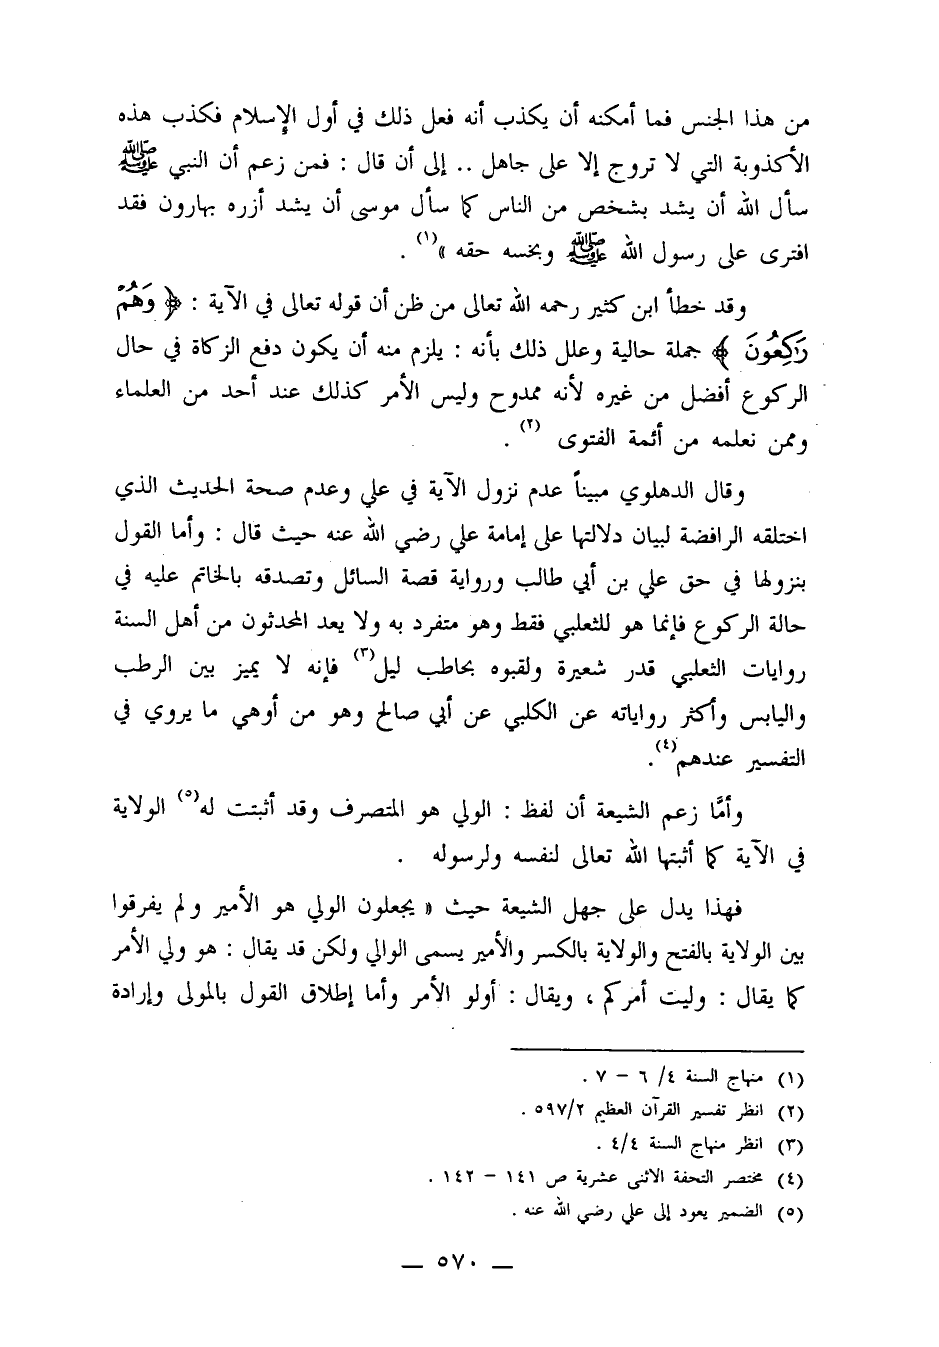 من هذا الجنس فما أمكنه أن يكذب أنه فعل ذلك في أول الإسلام فكذب هذه
الأكذوبة التي لا تروج إلا على جاهل .. إلى أن قال : فمن زعم أن النبي ﷺ
سأل الله أن يشد بشخص من الناس كما سأل موسى أن يشد أزره بهارون فقد
افترى على رسول الله ﷺ وبخسه حقه »(١) .
وقد خطأ ابن كثير رحمه الله تعالى من ظن أن قوله تعالى في الآية : ﴿ وَهُمْ
رَٰكِعُونَ ﴾ جملة حالية وعلل ذلك بأنه : يلزم منه أن يكون دفع الزكاة في حال
الركوع أفضل من غيره لأنه ممدوح وليس الأمر كذلك عند أحد من العلماء
وممن نعلمه من أئمة الفتوى (٢) .
وقال الدهلوي مبيناً عدم نزول الآية في علي وعدم صحة الحديث الذي
اختلقه الرافضة لبيان دلالتها على إمامة علي رضي الله عنه حيث قال : وأما القول
بنزولها في حق علي بن أبي طالب ورواية قصة السائل وتصدقه بالخاتم عليه في
حالة الركوع فإنما هو للثعلبي فقط وهو متفرد به ولا يعد المحدثون من أهل السنة
روايات الثعلبي قدر شعيرة ولقبوه بحاطب ليل(٣) فإنه لا يميز بين الرطب
واليابس وأكثر رواياته عن الكلبي عن أبي صالح وهو من أوهي ما يروي في
التفسير عندهم(٤).
وأمَّا زعم الشيعة أن لفظ : الولي هو المتصرف وقد أثبتت له(٥) الولاية
في الآية كما أثبتها الله تعالى لنفسه ولرسوله .
فهذا يدل على جهل الشيعة حيث « يجعلون الولي هو الأمير ولم يفرقوا
بين الولاية بالفتح والولاية بالكسر والأمير يسمى الوالي ولكن قد يقال : هو ولي الأمر
كما يقال : وليت أمركم ، ويقال : أولو الأمر وأما إطلاق القول بالمولى وإرادة
(١) منهاج السنة ٤/ ٦ – ٧ .
(٢) انظر تفسير القرآن العظيم ٥٩٧/٢ .
(٣) انظر منهاج السنة ٤/٤ .
(٤) مختصر التحفة الاثنى عشرية ص ١٤١ – ١٤٢ .
(٥) الضمير يعود إلى علي رضي الله عنه .
— ٥٧٠ —